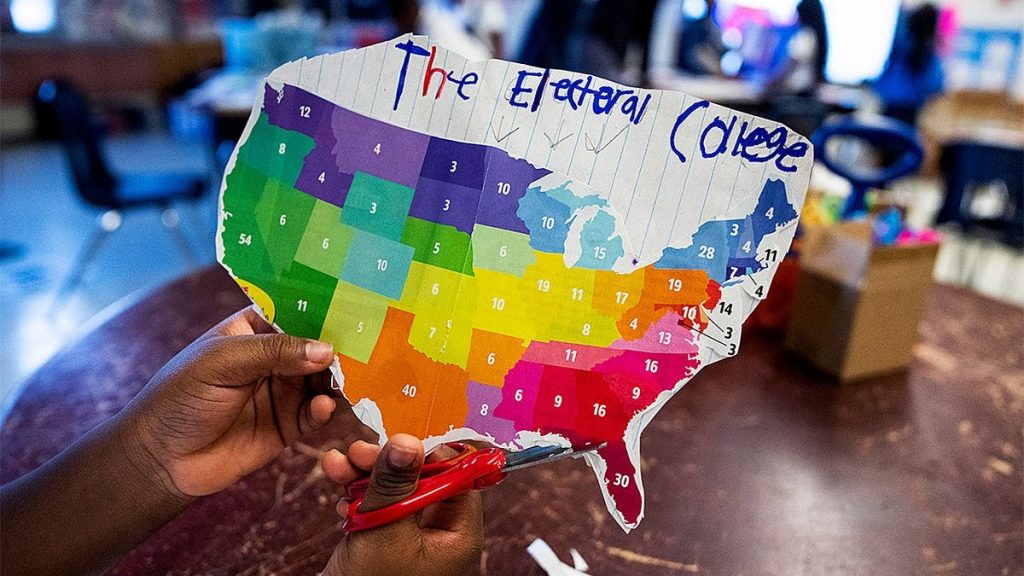 The Electoral College
12
4
3
10
8
4
3
3
10
15
28
3
4
4
11
7
4
54
6
6
10
5
6
19
11
17
19
14
3
3
11
5
6
7
10
8
4
10
13
40
6
11
16
8
6
9
16
9
30